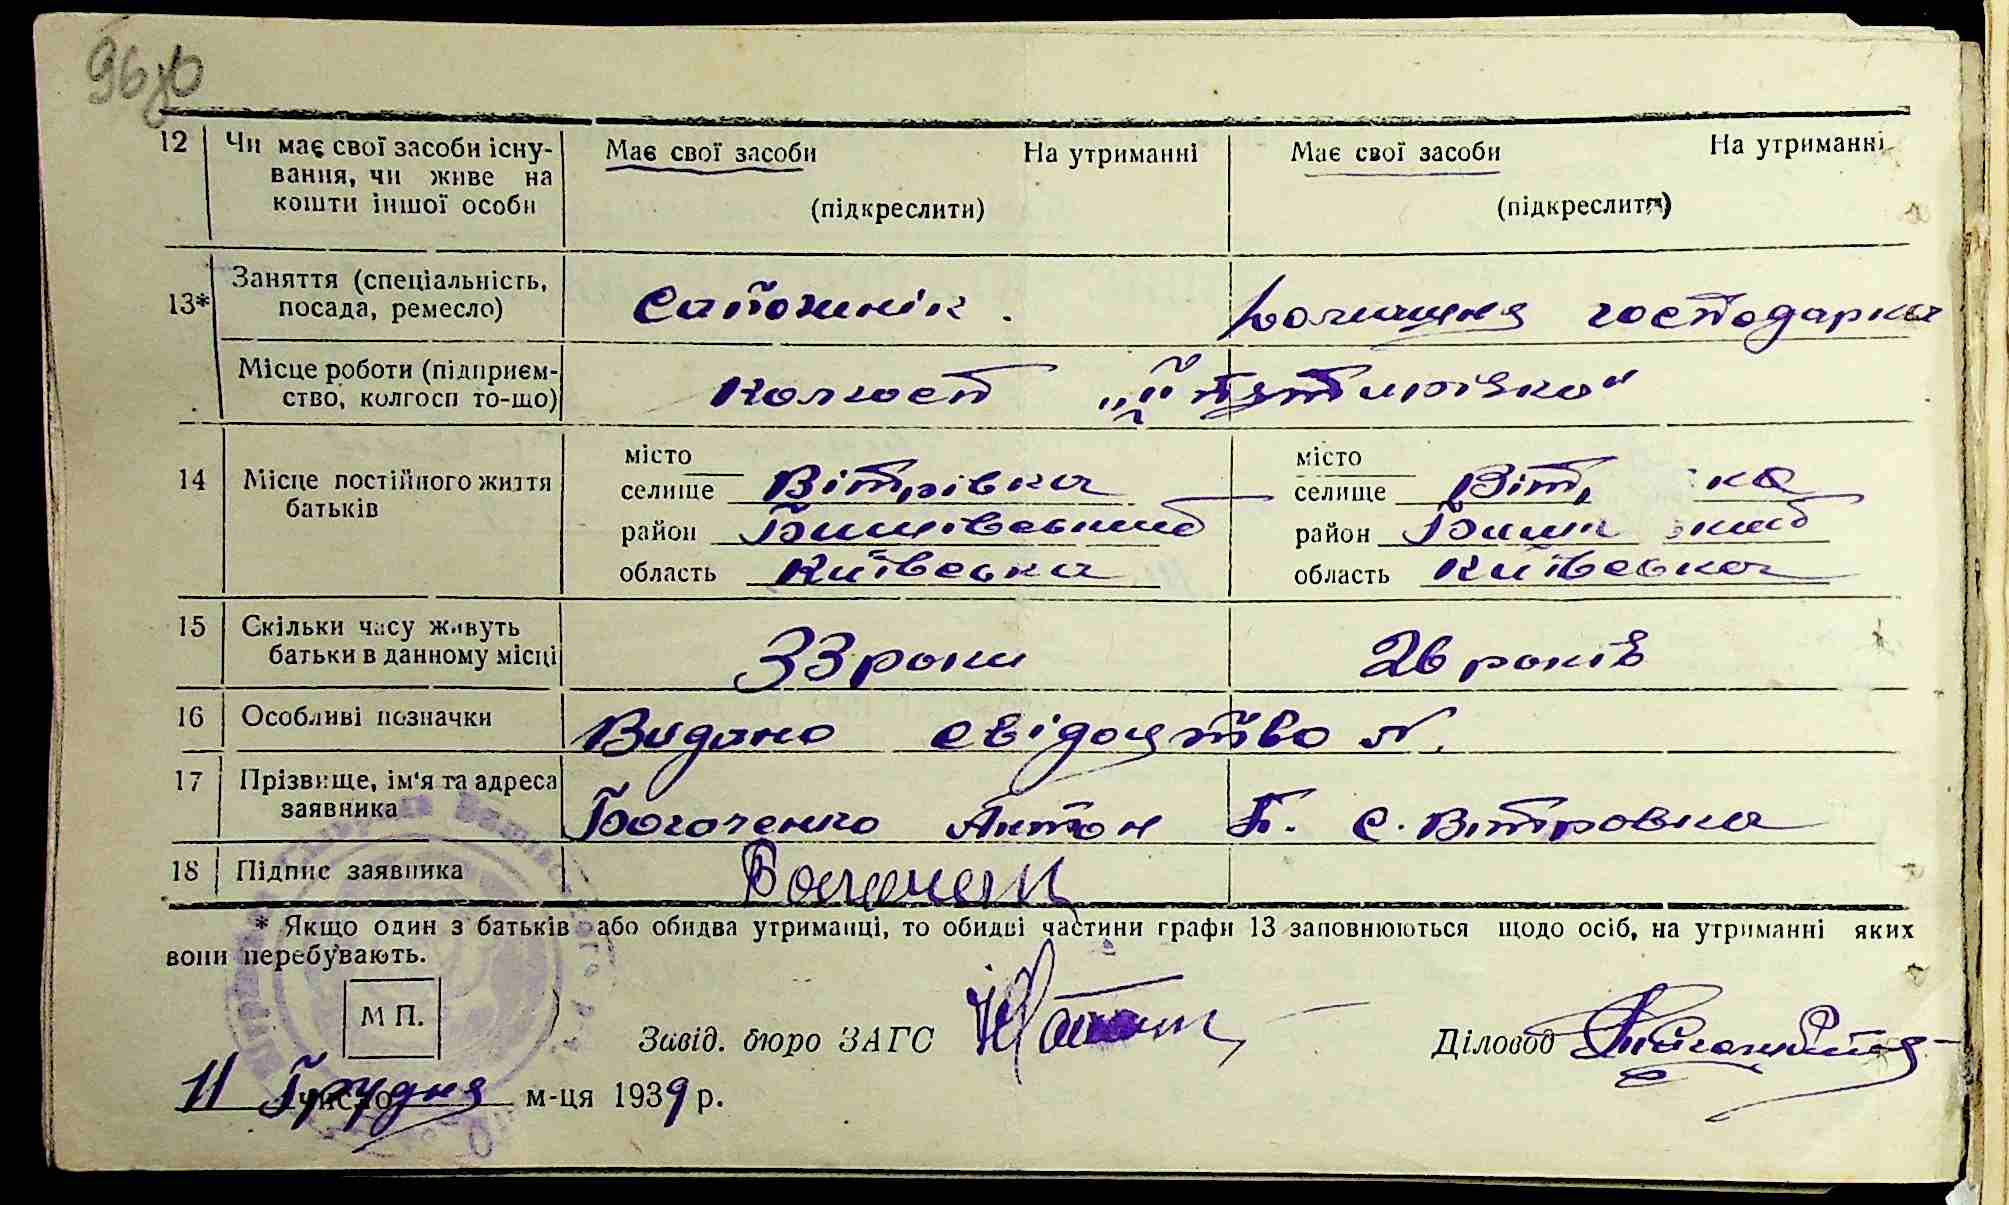 96
12 Чи має свої засоби існу- Має свої засоби На утриманні Має свої засоби На утриманні
вання, чи живе на
кошти іншої особи (підкреслити) (підкреслити)
Заняття (спеціальність,
13* посада, ремесло) Сапожнік. Домашня господарка
Місце роботи (підприєм-
ство, колгосп то-що) Колгосп
14 Місце постійного життя
батьків
місто місто
селище Вітрівка селище Віт ка
район Бишівський район Биш ький
область Київська область Київська
15 Скільки часу живуть
батьки в данному місці 33 роки 26 років
16 Особливі позначки Видано свідоцтво N.
17 Прізвище, ім'я та адреса
заявника Богаченко Антон П. с. Вітровка
18 Підпис заявника
* Якщо один з батьків або обидва утриманці, то обидві частини графи 13 заповнюються щодо осіб, на утриманні яких
вони перебувають.
М П.
Завід. бюро ЗАГС Діловод
11 Грудня число м-ця 1939 р.